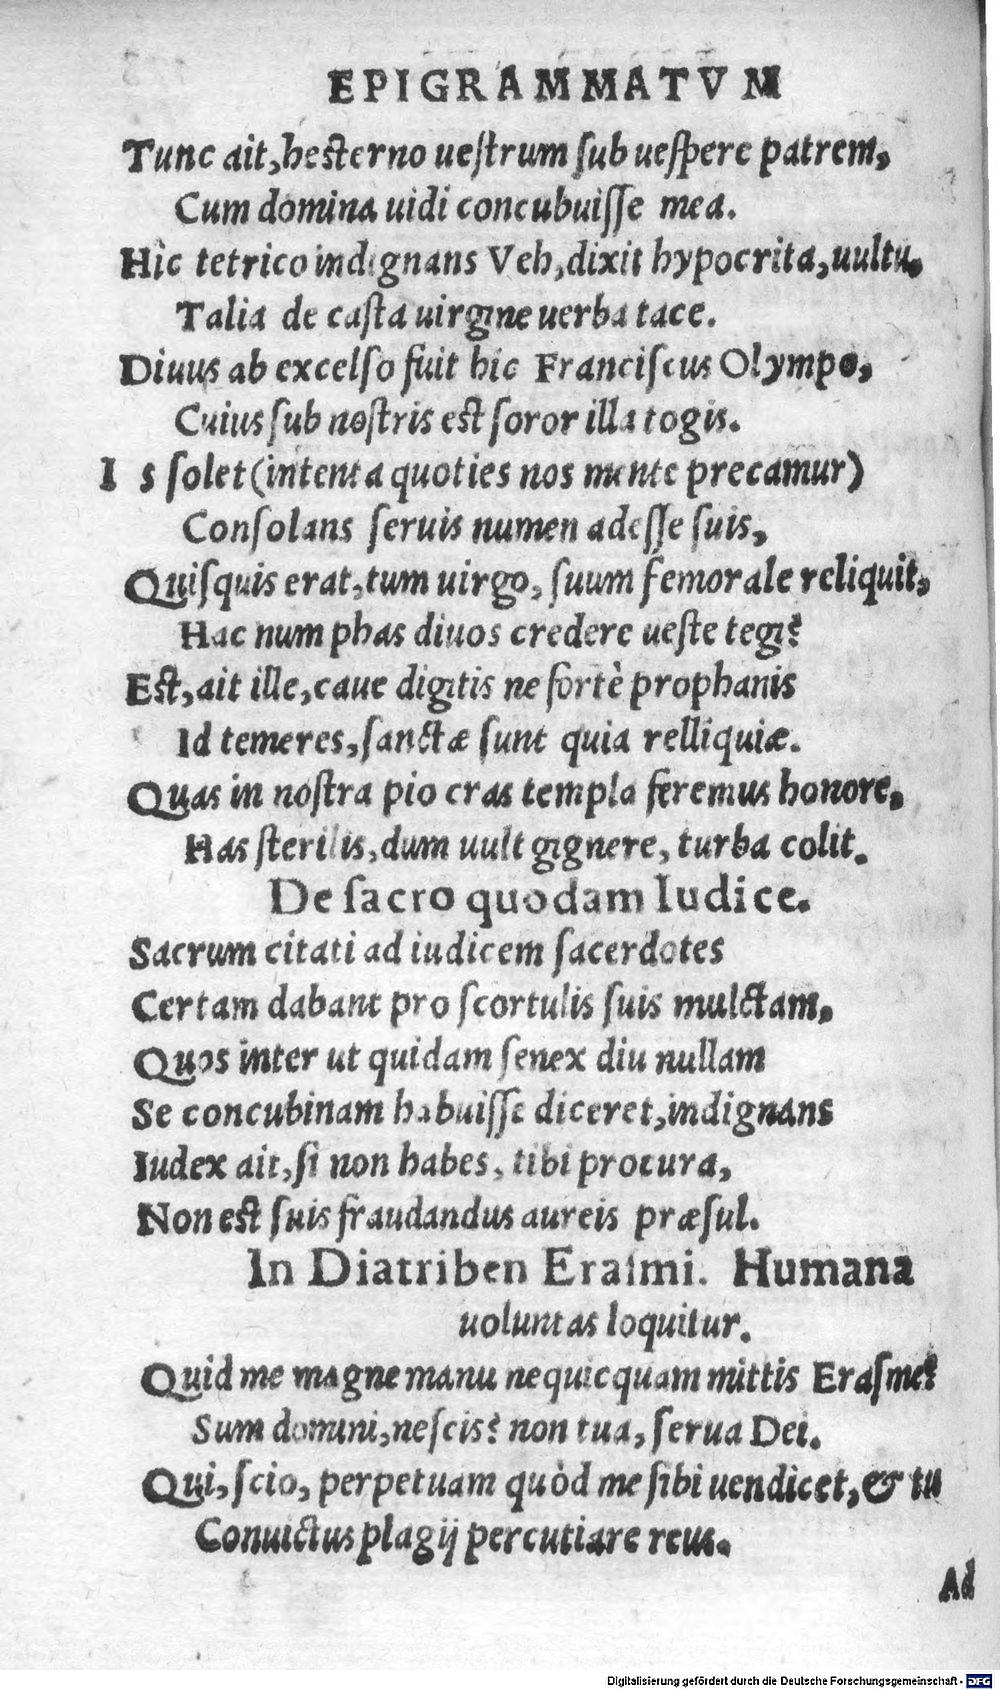 EPIGRAMMATVM
Tunc ait, hesterno uestrum sub uespere patrem,
Cum domina uidi concubuisse mea.
Hìc tetrico indignans Veh, dixit hypocrita, uultu,
Talia de casta uirgine uerba tace.
Diuus ab excelso fuit hic Franciscus Olympo,
Cuius sub nostris est soror illa togis.
I s solet (intenta quoties nos mente precamur)
Consolans seruis numen adesse suis,
Quisquis erat, tum uirgo, suum femorale reliquit,
Hac num phas diuos credere ueste tegi?
Est, ait ille, caue digitis ne fortè prophanis
Id temeres, sanctæ sunt quia relliquiæ.
Quas in nostra pio cras templa feremus honore,
Has sterilis, dum uult gignere, turba colit.
De sacro quodam Iudice.
Sacrum citati ad iudicem sacerdotes
Certam dabant pro scortulis suis mulctam,
Quos inter ut quidam senex diu nullam
Se concubinam habuisse diceret, indignans
Iudex ait, si non habes, tibi procura,
Non est suis fraudandus aureis præsul.
In Diatriben Erasmi. Humana
uoluntas loquitur.
Quid me magne manu nequicquam mittis Erasme?
Sum domini, nescis? non tua, serua Dei.
Qui, scio, perpetuam quòd me sibi uendicet, & tu
Conuictus plagij percutiare reus.
Ad
Digitalisierung gefördert durch die Deutsche Forschungsgemeinschaft - DFG